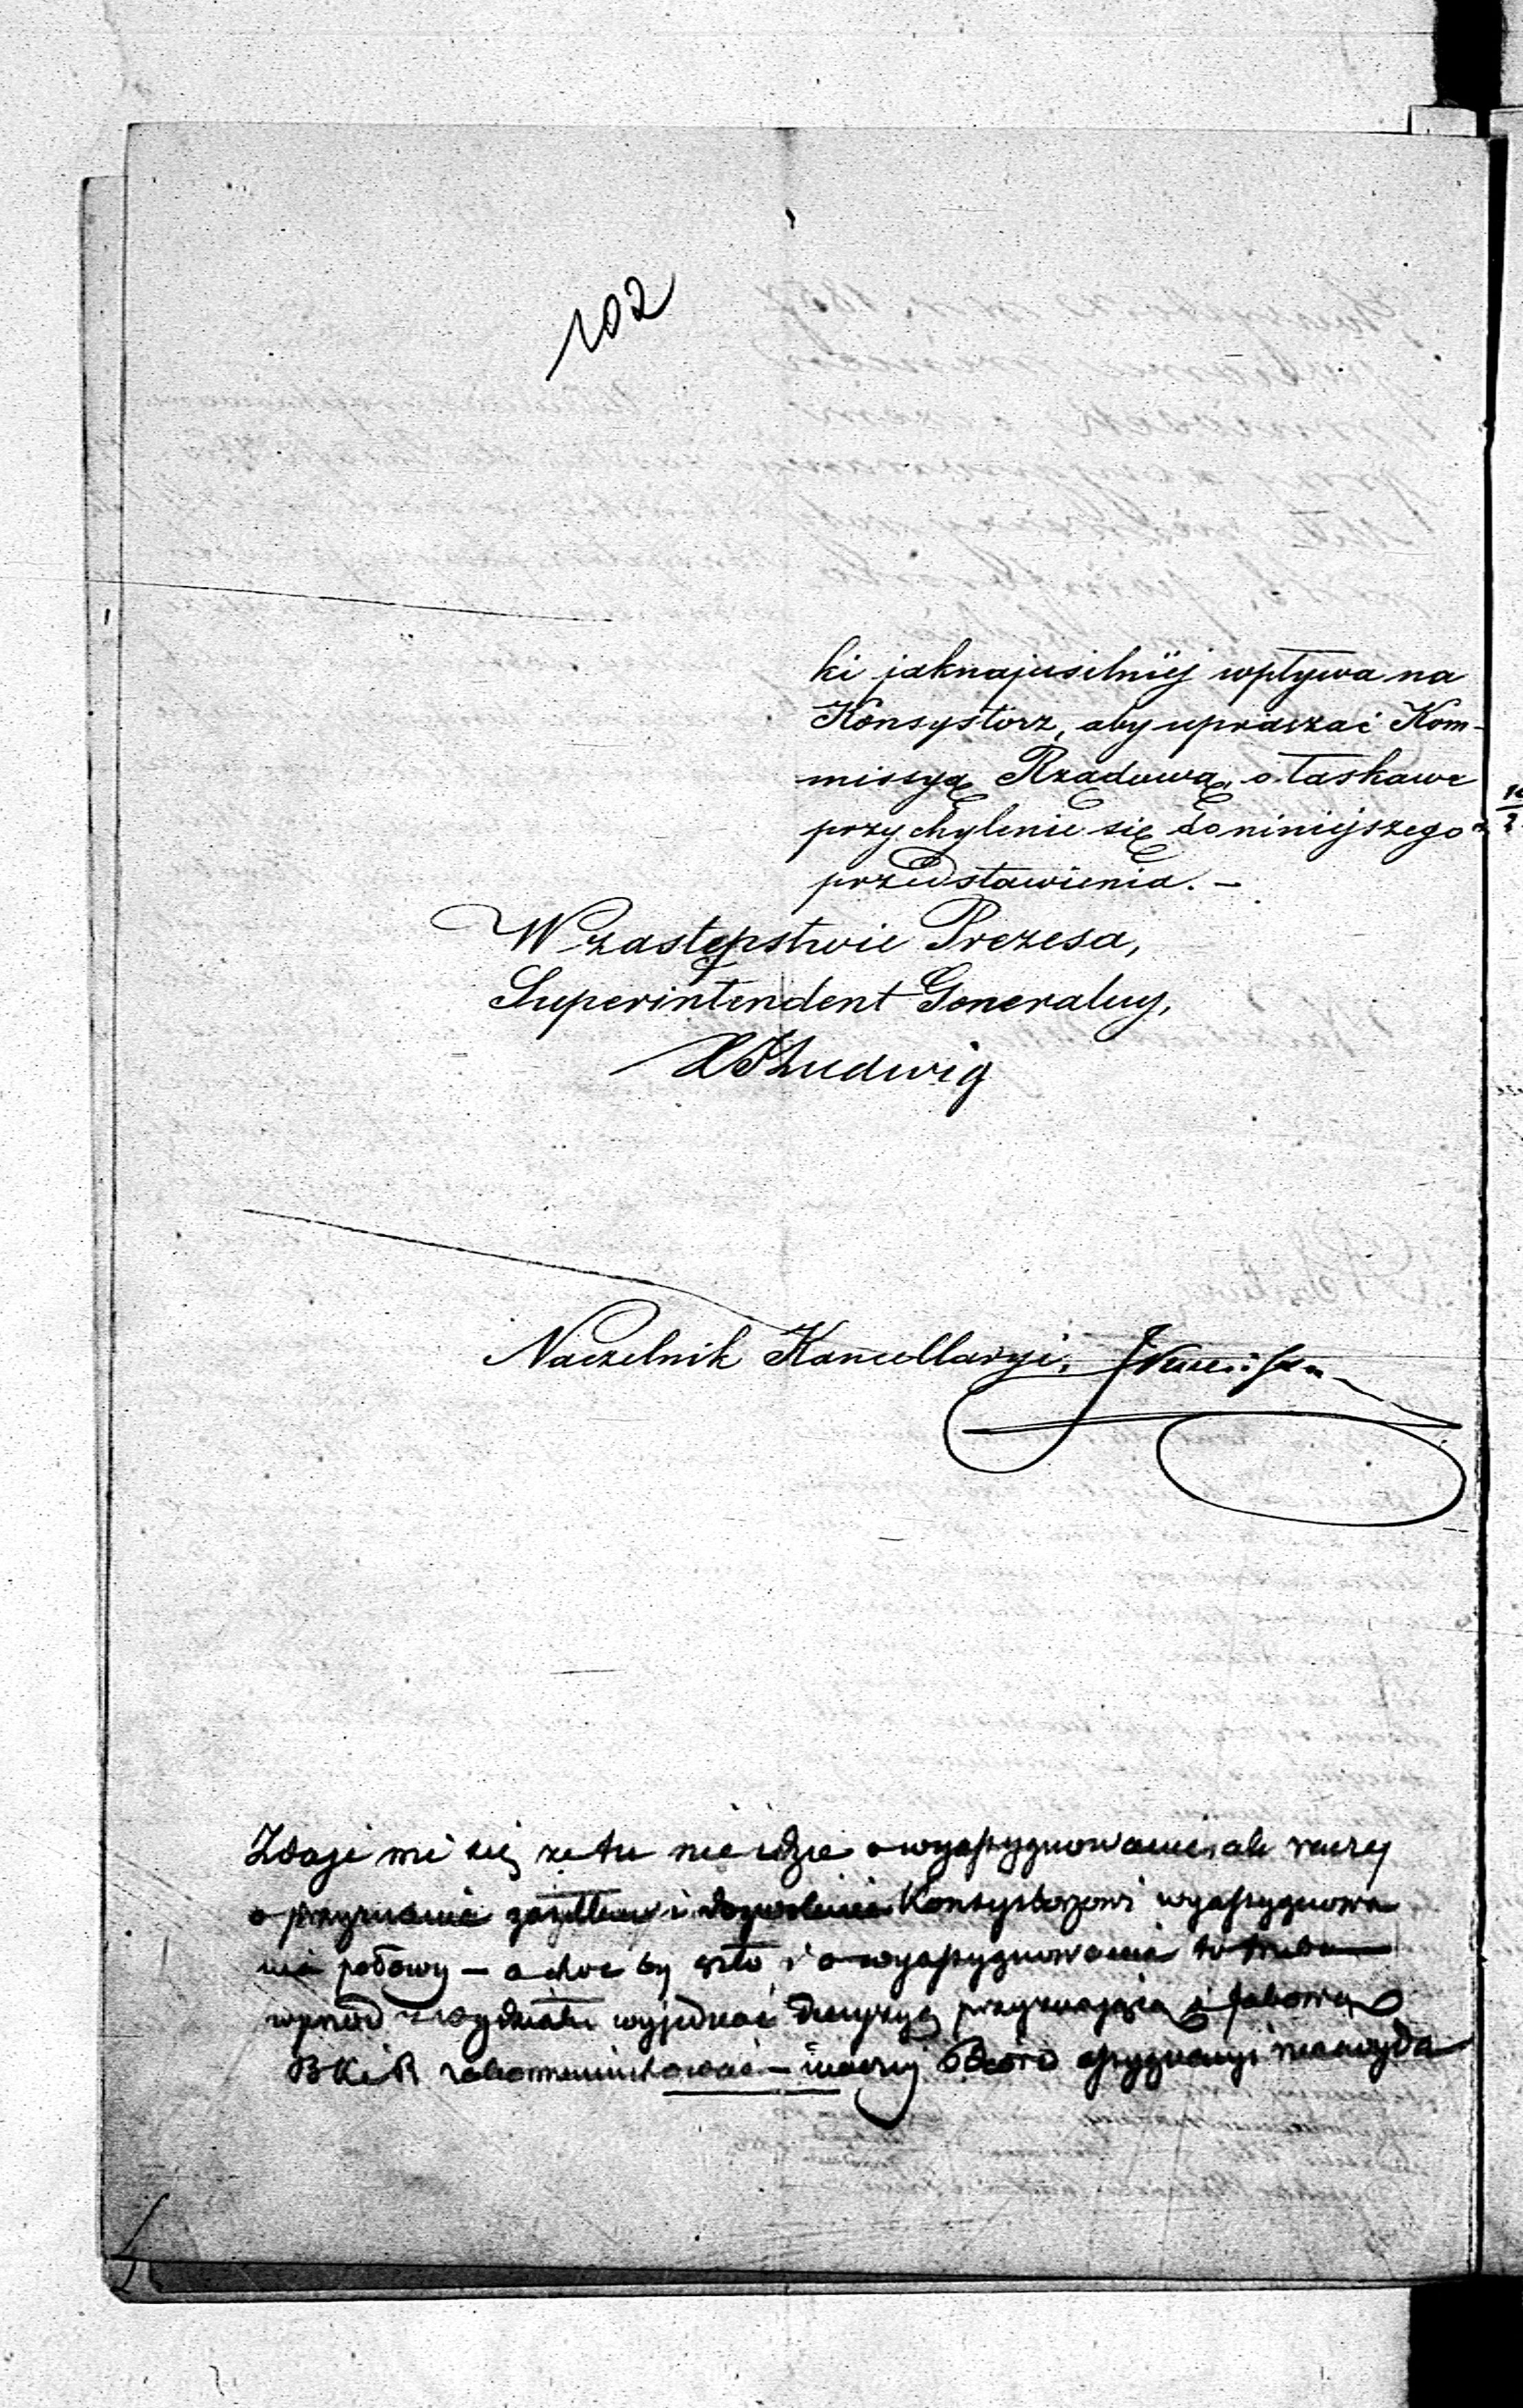 102
ki jaknajusilniéj wpływa na
Konsystorz, aby upraszać Kom-
missyą Rządową, o łaskawe
przychylenie się do niniejszego
przedstawienia. –
W zastępstwie Prezesa,
Superintendent Generalny,
Ludwig
Naczelnik Kancellaryi,
Zdaje mi się że tu nie idzie o wyassygnowanie, ale raczej
o przyznanie zasiłku i dozwolenie Konsystorzowi wyassygnowa
nia połowy – a choć by szło i o wyassygnowanie to trzeba
wprzód z wydziału wyjednać decyzyę przyznającą i takową
BKiR zakommunikować – inaczej assygnacyi nie wyda